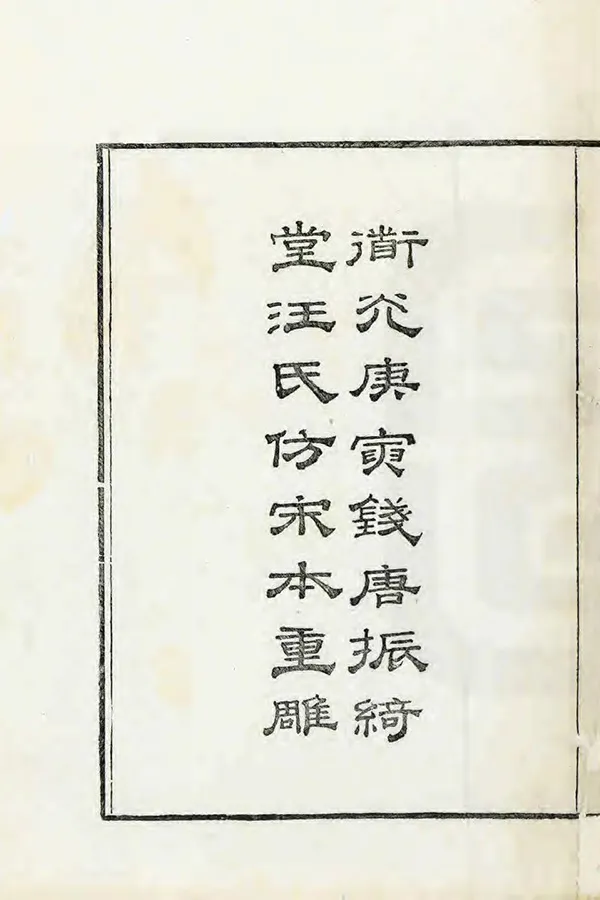 衟光庚寅錢唐振綺
堂汪氏仿宋本重雕